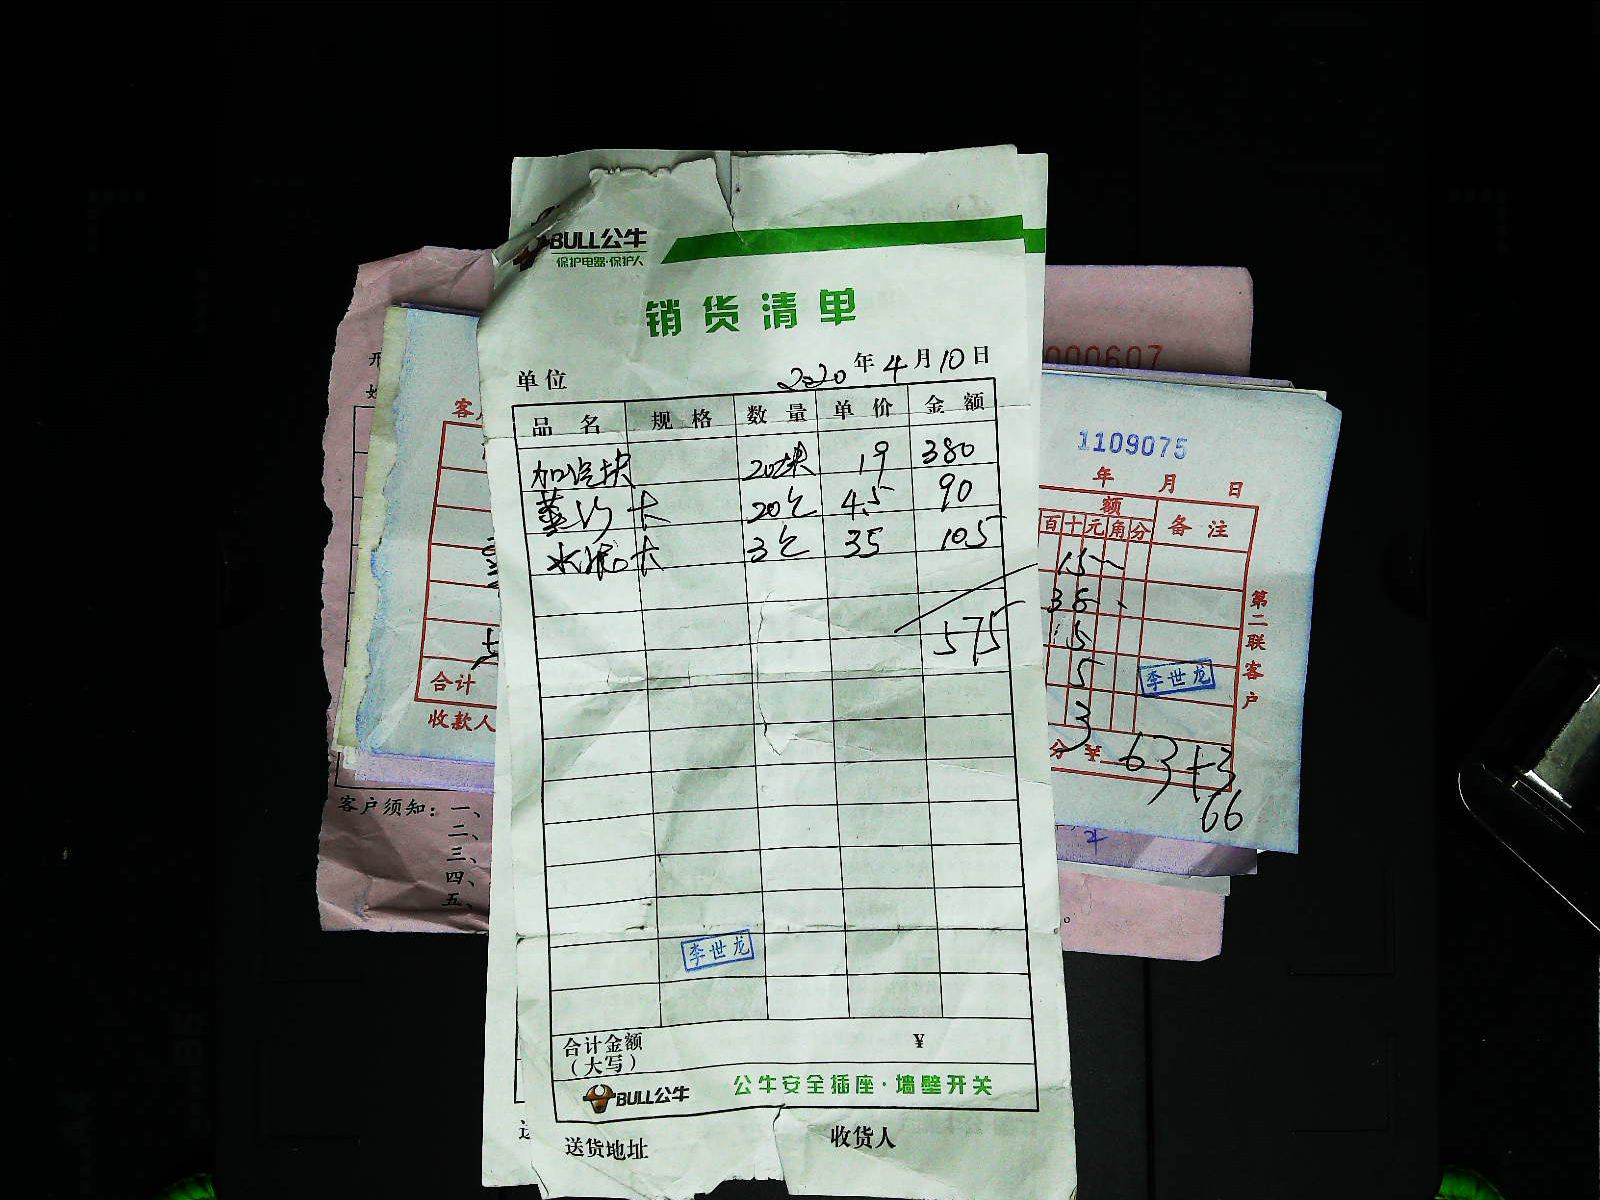 BULL公牛
保护电器·保护人
销货清单
单位 2020年4月10日
品名 规格 数量 单价 金额
加汽块 20块 19 380
20包 4.5 90
水泥 3包 35 105
575
李世龙
合计金额 ¥
(大写)
BULL公牛 公牛安全插座·墙壁开关
送货地址 收货人
000607
1109075
年 月 日
额 备注
百十元角分
15
38
15
5
李世龙
3
分 ¥ 63+3
66
第二联客户
合计
收款人
客户须知：一、
二、
三、
四、
五、